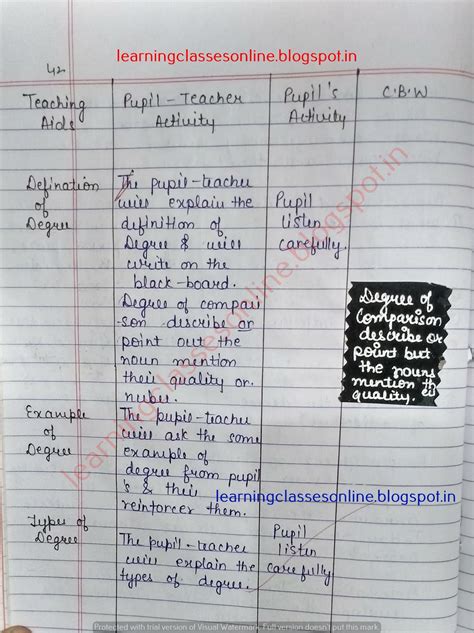 learningclassesonline.blogspot.in
42
Teaching Aids
Pupil-Teacher Activity
Pupil's Activity
C.B.W
Defination of Degree
The pupil-teacher
will explain the
definition of
Degree & will
write on the
black-board.
Degree of compari
-son describe or
point out the
noun mention
their quality or
nuber.
Pupil
listen
carefully.
Degree of
Comparison
describe or
point but
the nouns
mention the
quality.
Example
of
Degree
The pupil-teacher
will ask the some
example of
degree from pupil
's & their
reinforcer them.
learningclassesonline.blogspot.in
Types of
Degree
The pupil-teacher
will explain the
types of degree.
Pupil
listen
carefully
learningclassesonline.blogspot.in
Protected with trial version of Visual Watermark. Full version doesn't put this mark.